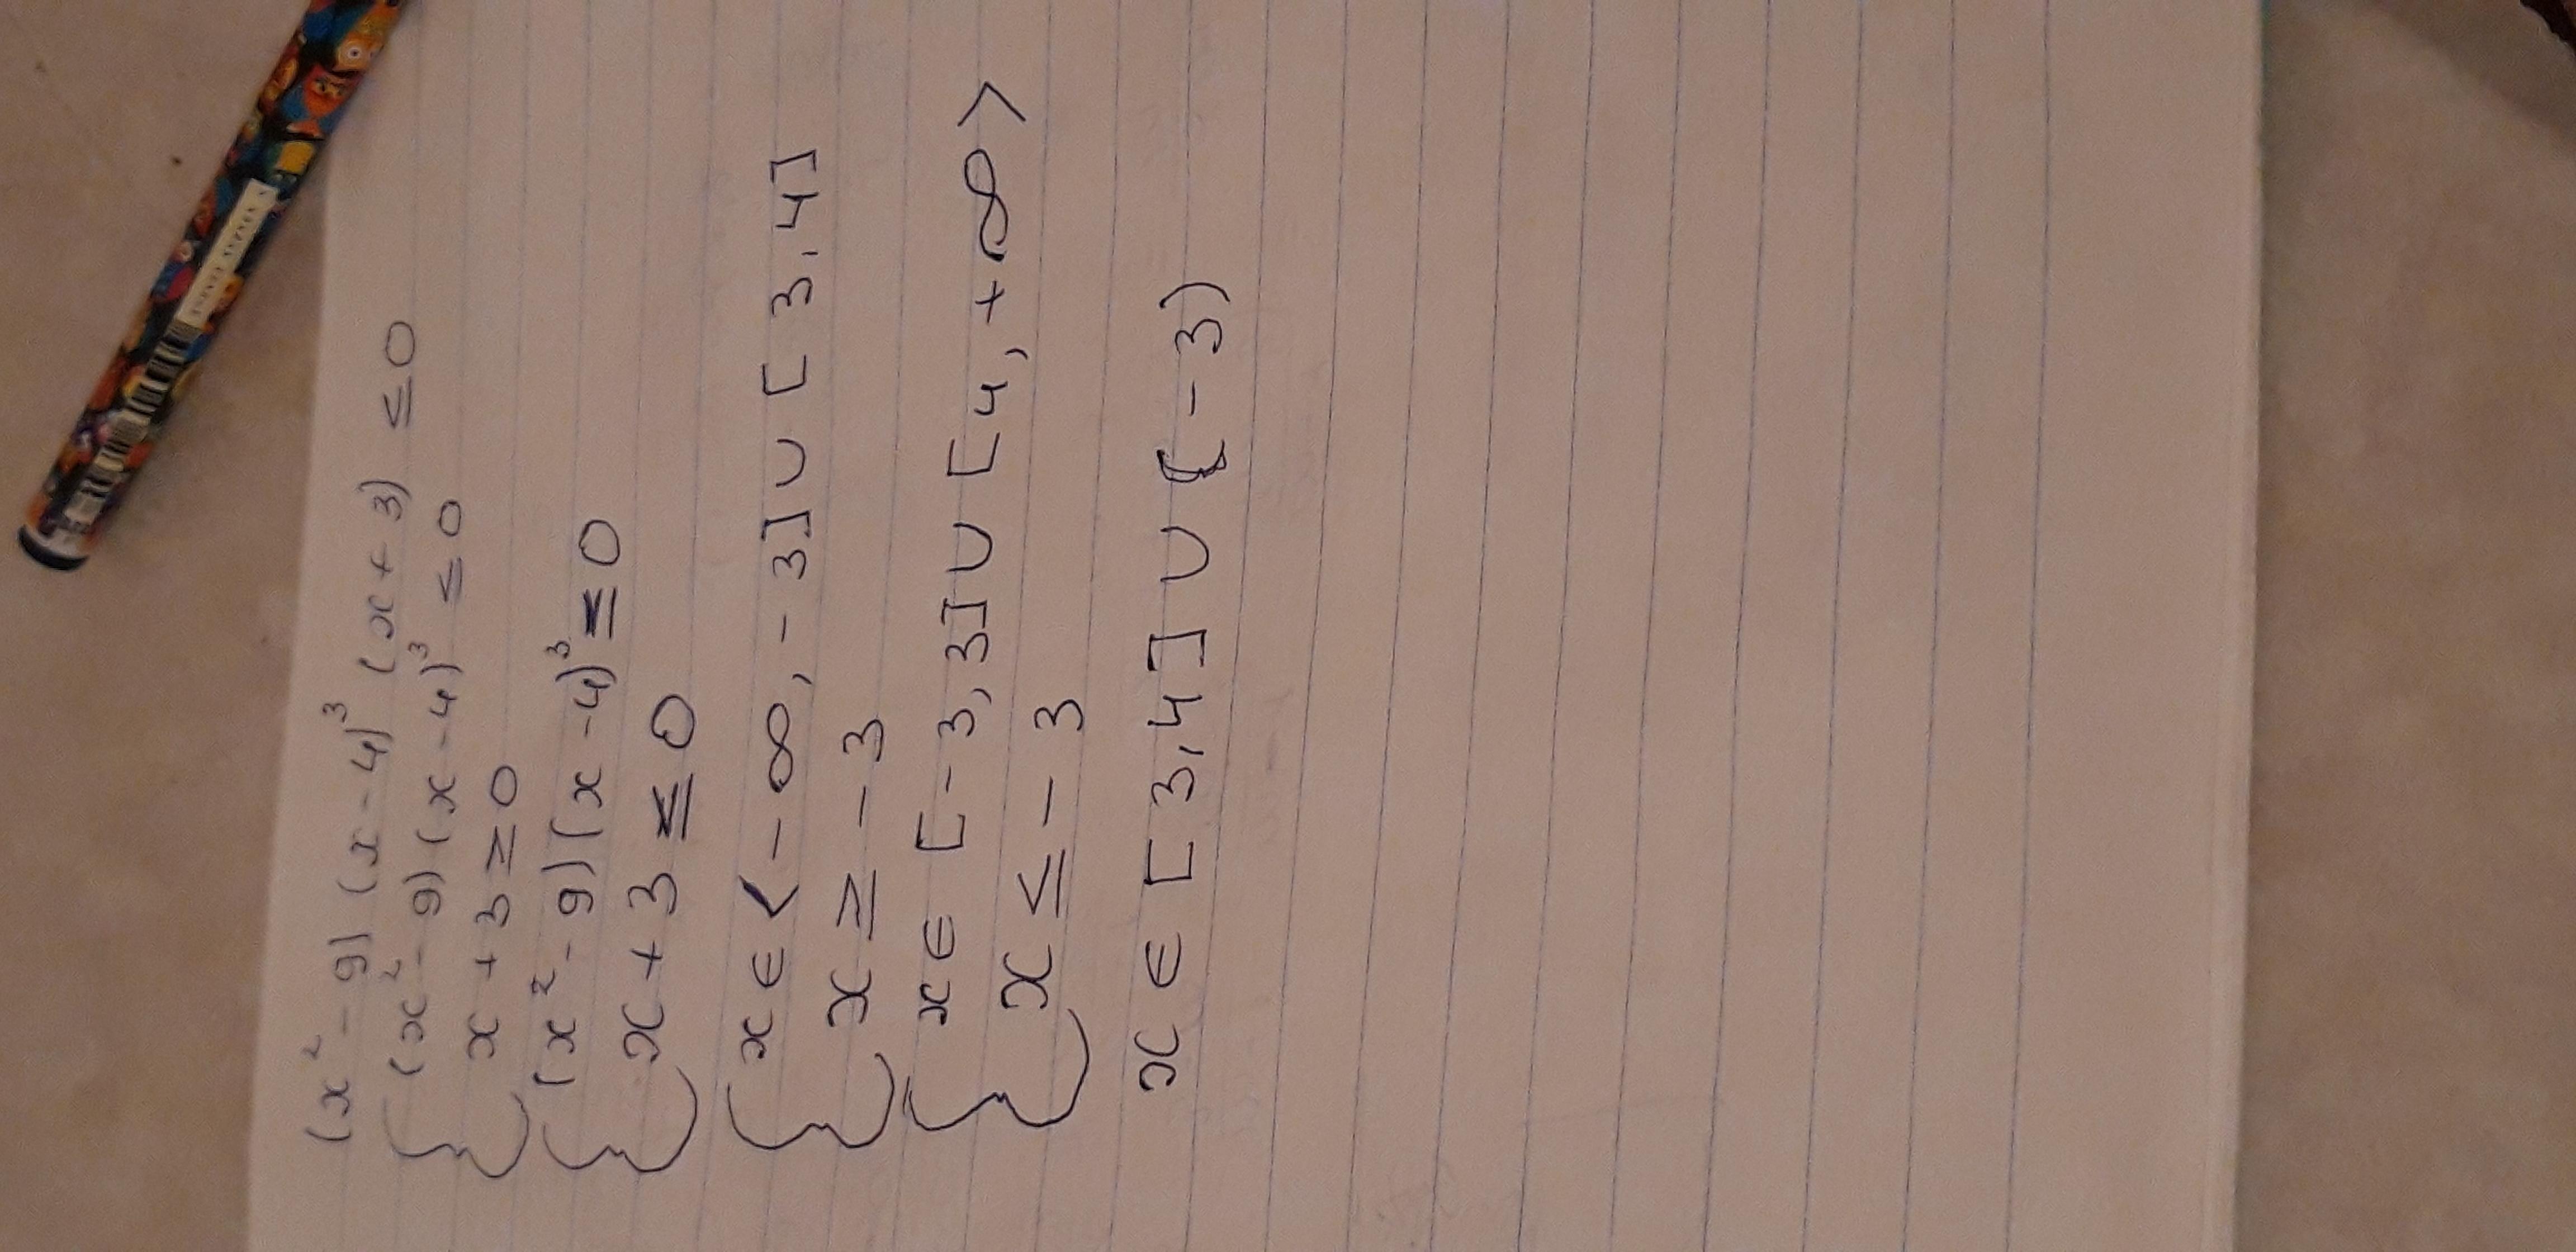 (x² - 9) (x - 4)³ (x + 3) ≤ 0
{ (x² - 9) (x - 4)³ ≤ 0
x + 3 ≥ 0
{ (x² - 9) (x - 4)³ ≥ 0
x + 3 ≤ 0
{ x ∈ < - ∞, - 3] ∪ [ 3, 4]
x ≥ - 3
{ x ∈ [ - 3, 3] ∪ [4, + ∞ >
x ≤ - 3
x ∈ [ 3, 4] ∪ { - 3)